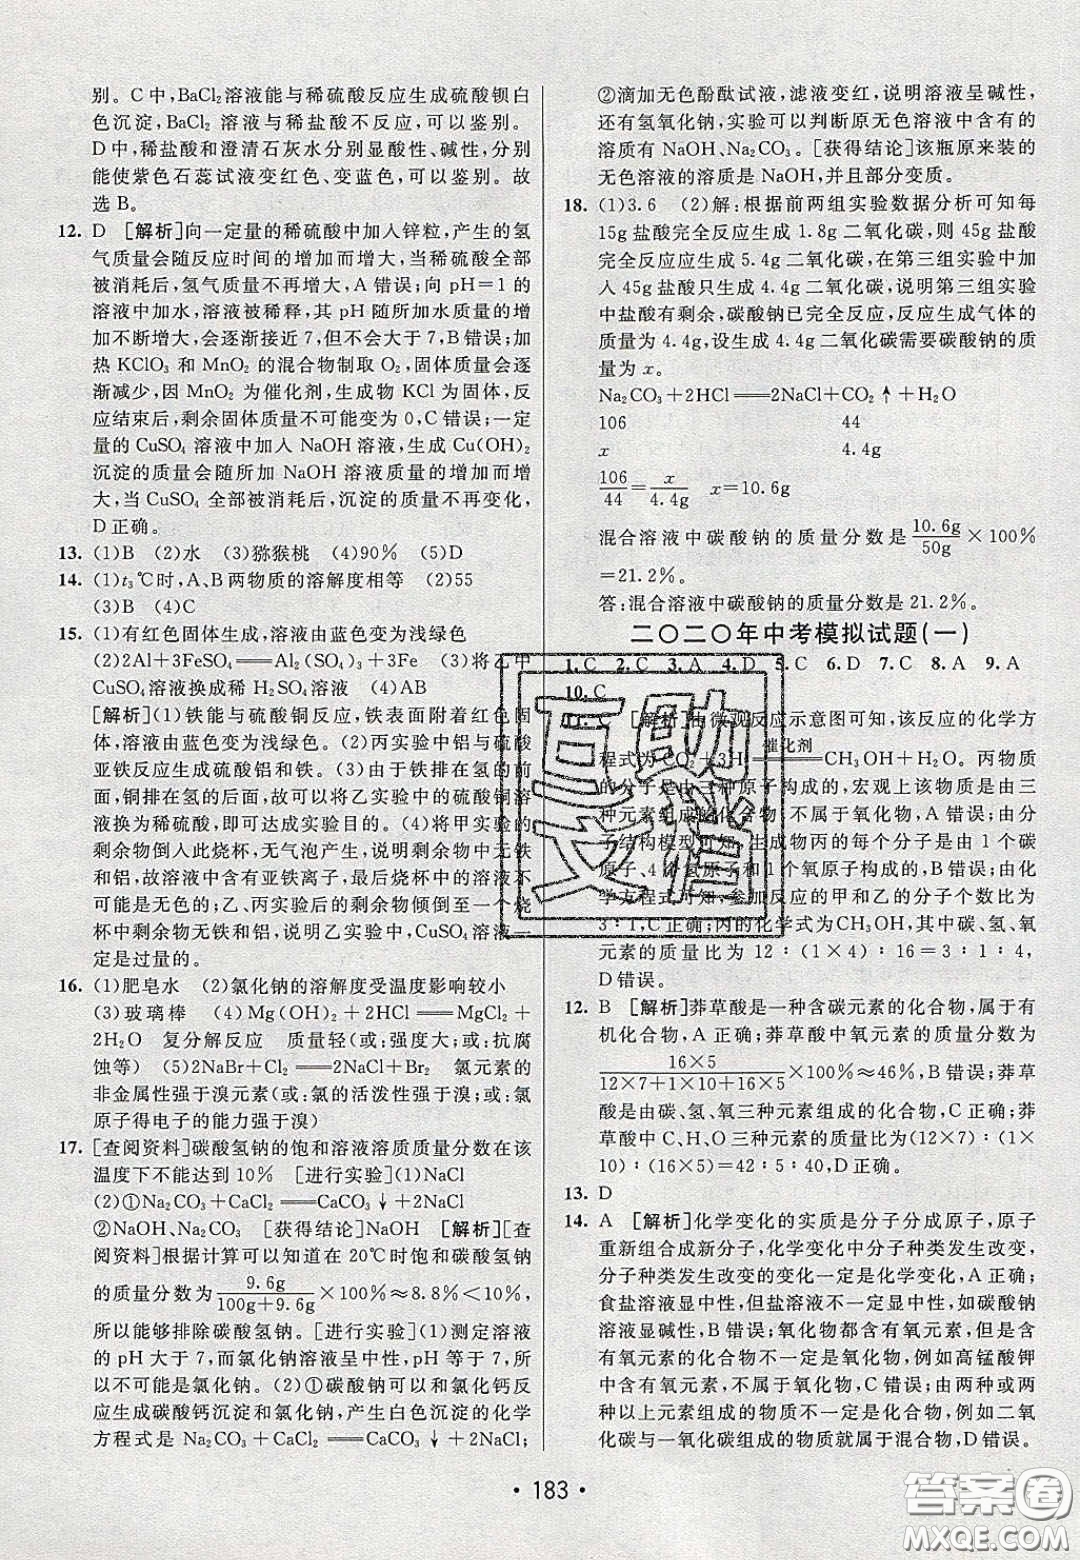 别。C中,BaCl₂溶液能与稀硫酸反应生成硫酸钡白
色沉淀,BaCl₂ 溶液与稀盐酸不反应,可以鉴别。
D中,稀盐酸和澄清石灰水分别显酸性、碱性,分别
能使紫色石蕊试液变红色、变蓝色,可以鉴别。故
选B。
12. D [解析]向一定量的稀硫酸中加入锌粒,产生的氢
气质量会随反应时间的增加而增大,当稀硫酸全部
被消耗后,氢气质量不再增大,A错误;向pH=1的
溶液中加水,溶液被稀释,其pH随所加水质量的增
加不断增大,会逐渐接近7,但不会大于7,B错误;加
热KClO₃ 和MnO₂ 的混合物制取O₂,固体质量会逐
渐减少,因MnO₂ 为催化剂,生成物KCl为固体,反
应结束后,剩余固体质量不可能变为0,C错误;一定
量的CuSO₄ 溶液中加入NaOH溶液,生成Cu(OH)₂
沉淀的质量会随所加NaOH溶液质量的增加而增
大,当CuSO₄ 全部被消耗后,沉淀的质量不再变化,
D正确。
13. (1)B (2)水 (3)猕猴桃 (4)90% (5)D
14. (1)t₃℃时,A、B两物质的溶解度相等 (2)55
(3)B (4)C
15. (1)有红色固体生成,溶液由蓝色变为浅绿色
(2)2Al+3FeSO₄══Al₂(SO₄)₃+3Fe (3)将乙中
CuSO₄溶液换成稀H₂SO₄溶液 (4)AB
[解析](1)铁能与硫酸铜反应,铁表面附着红色固
体,溶液由蓝色变为浅绿色。(2)丙实验中铝与硫酸
亚铁反应生成硫酸铝和铁。(3)由于铁排在氢的前
面,铜排在氢的后面,故可以将乙实验中的硫酸铜溶
液换为稀硫酸,即可达成实验目的。(4)将甲实验的
剩余物倒入此烧杯,无气泡产生,说明剩余物中无铁
和铝,故溶液中含有亚铁离子,最后烧杯中的剩余物
不可能是无色的;乙、丙实验后的剩余物倾倒至一个烧
杯中剩余物无铁和铝,说明乙实验中,CuSO₄溶液一
定是过量的。
16. (1)肥皂水 (2)氯化钠的溶解度受温度影响较小
(3)玻璃棒 (4)Mg(OH)₂+2HCl══MgCl₂+
2H₂O 复分解反应 质量轻(或:强度大;或:抗腐
蚀等) (5)2NaBr+Cl₂══2NaCl+Br₂ 氯元素的
非金属性强于溴元素(或:氯的活泼性强于溴;或:氯
原子得电子的能力强于溴)
17. [查阅资料]碳酸氢钠的饱和溶液溶质质量分数在该
温度下不能达到10% [进行实验](1)NaCl
(2)①Na₂CO₃+CaCl₂══CaCO₃↓+2NaCl
②NaOH、Na₂CO₃ [获得结论]NaOH [解析][查
阅资料]根据计算可以知道在20℃时饱和碳酸氢钠
的质量分数为9.6g/(100g+9.6g)×100%≈8.8%<10%,
所以能够排除碳酸氢钠。[进行实验](1)测定溶液
的pH大于7,而氯化钠溶液呈中性,pH等于7,所
以不可能是氯化钠。(2)①碳酸钠可以和氯化钙反
应生成碳酸钙沉淀和氯化钠,产生白色沉淀的化学
方程式是Na₂CO₃+CaCl₂══CaCO₃↓+2NaCl;
②滴加无色酚酞试液,滤液变红,说明溶液呈碱性,
还有氢氧化钠,实验可以判断原无色溶液中含有的
溶质有NaOH、Na₂CO₃。[获得结论]该瓶原来装的
无色溶液的溶质是NaOH,并且部分变质。
18. (1)3.6 (2)解:根据前两组实验数据分析可知每
15g盐酸完全反应生成1.8g二氧化碳,则45g盐酸
完全反应应生成5.4g二氧化碳,在第三组实验中加
入45g盐酸只生成4.4g二氧化碳,说明第三组实验
中盐酸有剩余,碳酸钠已完全反应,反应生成气体的
质量为4.4g,设生成4.4g二氧化碳需要碳酸钠的质
量为x。
Na₂CO₃+2HCl══2NaCl+CO₂↑+H₂O
106 44
x 4.4g
106/44=x/4.4g x=10.6g
混合溶液中碳酸钠的质量分数是10.6g/50g×100%
=21.2%。
答:混合溶液中碳酸钠的质量分数是21.2%。
二〇二〇年中考模拟试题(一)
1. C 2. C 3. A 4. D 5. C 6. D 7. C 8. A 9. A
10. C
11. C [解析]由微观反应示意图可知,该反应的化学方
程式为CO₂+3H₂══催化剂══CH₃OH+H₂O。丙物质
的分子是由三种原子构成的,宏观上该物质是由三
种元素组成的化合物,不属于氧化物,A错误;由分
子结构模型可知,生成物丙的每个分子是由1个碳
原子、4个氢原子和1个氧原子构成的,B错误;由化
学方程式可知,参加反应的甲和乙的分子个数比为
3∶1,C正确;丙的化学式为CH₃OH,其中碳、氢、氧
元素的质量比为12∶(1×4)∶16=3∶1∶4,
D错误。
12. B [解析]莽草酸是一种含碳元素的化合物,属于有
机化合物,A正确;莽草酸中氧元素的质量分数为
16×5/(12×7+1×10+16×5)×100%≈46%,B错误;莽草
酸是由碳、氢、氧三种元素组成的化合物,C正确;莽
草酸中C、H、O三种元素的质量比为(12×7)∶(1×
10)∶(16×5)=42∶5∶40,D正确。
13. D
14. A [解析]化学变化的实质是分子分成原子,原子
重新组合成新分子,化学变化中分子种类发生改变,
分子种类发生改变的变化一定是化学变化,A正确;
食盐溶液显中性,但盐溶液不一定显中性,如碳酸钠
溶液显碱性,B错误;氧化物都含有氧元素,但是含
有氧元素的化合物不一定是氧化物,例如高锰酸钾
中含有氧元素,不属于氧化物,C错误;由两种或两
种以上元素组成的物质不一定是化合物,例如二氧
化碳与一氧化碳组成的物质就属于混合物,D错误。
• 183 •
互助
文档
答案圈
MXQE.COM